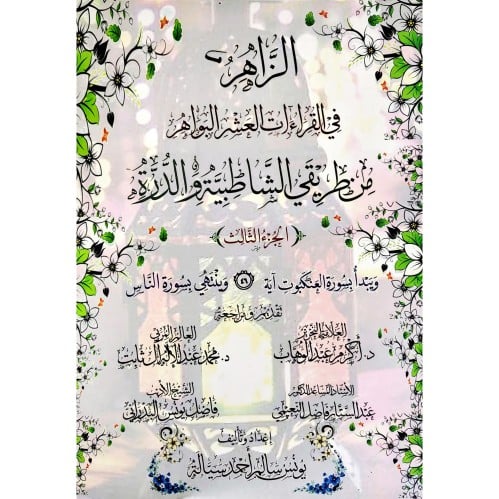 الزاهر
في القراءات العشر البواهر
من طريقي الشاطبية والدرة
(الجزء الثالث)
ويبدأ بسورة العنكبوت آية ٤٦ وينتهي بسورة الناس
تقديم ومراجعة
العلامة النحرير
د. أكرم عبد الوهاب
العالم الرباني
د. محمد عبد الإكمال ثابت
الأستاذ المساعد الدكتور
عبد الستار فاضل النعيمي
الشيخ الأديب
فاضل يونس البدراني
إعداد وتأليف
يونس سالم أحمد سيالة